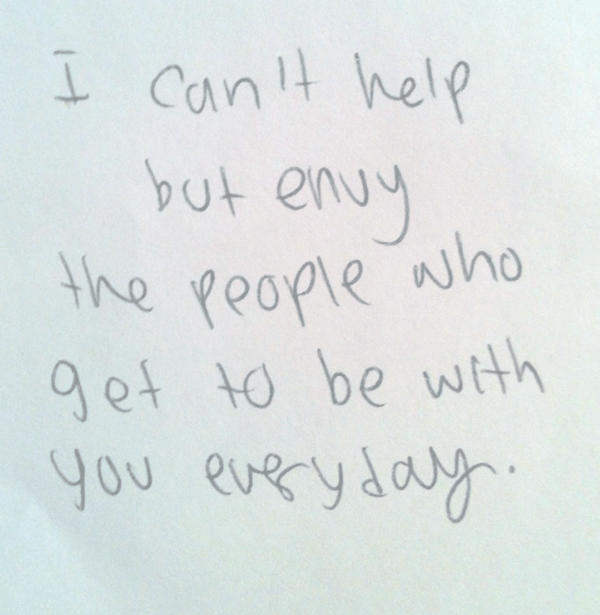 I can't help
but envy
the people who
get to be with
you everyday.